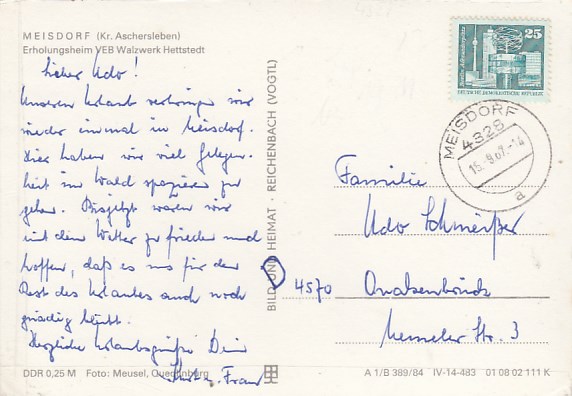 MEISDORF (Kr. Aschersleben)
Erholungsheim VEB Walzwerk Hettstedt
Lieber Udo!
Unseren Urlaub verbringen wir
wieder einmal in Meisdorf.
Hier haben wir viel Gelegen-
heit im Wald spazieren zu
gehen. Bisjetzt waren wir
mit dem Wetter zufrieden und
hoffen, daß es uns für den
Rest des Urlaubes auch noch
gnädig bleibt.
Herzliche Urlaubsgrüße Dein
u. Frau
DDR 0,25 M Foto: Meusel, Quedlinburg
BILD UND HEIMAT · REICHENBACH (VOGTL)
25
DEUTSCHE DEMOKRATISCHE REPUBLIK
MEISDORF
4326
15.-9.87.-14
a
Familie
Udo Schmeißer
4570 Quakenbrück
Memeler Str. 3
A 1/B 389/84 IV-14-483 01 08 02 111 K